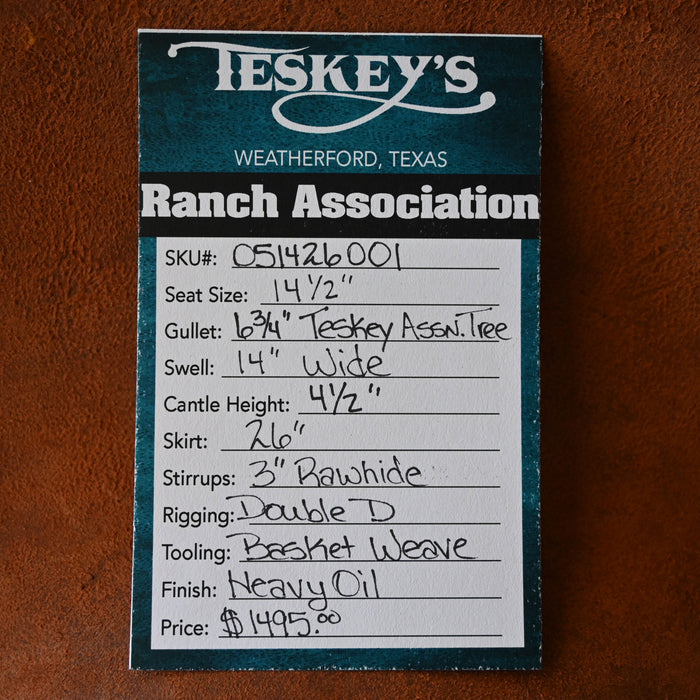 TESKEY'S
WEATHERFORD, TEXAS
Ranch Association
SKU#: 051426001
Seat Size: 14 1/2"
Gullet: 6 3/4" Teskey Assn. Tree
Swell: 14" Wide
Cantle Height: 4 1/2"
Skirt: 26"
Stirrups: 3" Rawhide
Rigging: Double D
Tooling: Basket Weave
Finish: Heavy Oil
Price: $1495.00